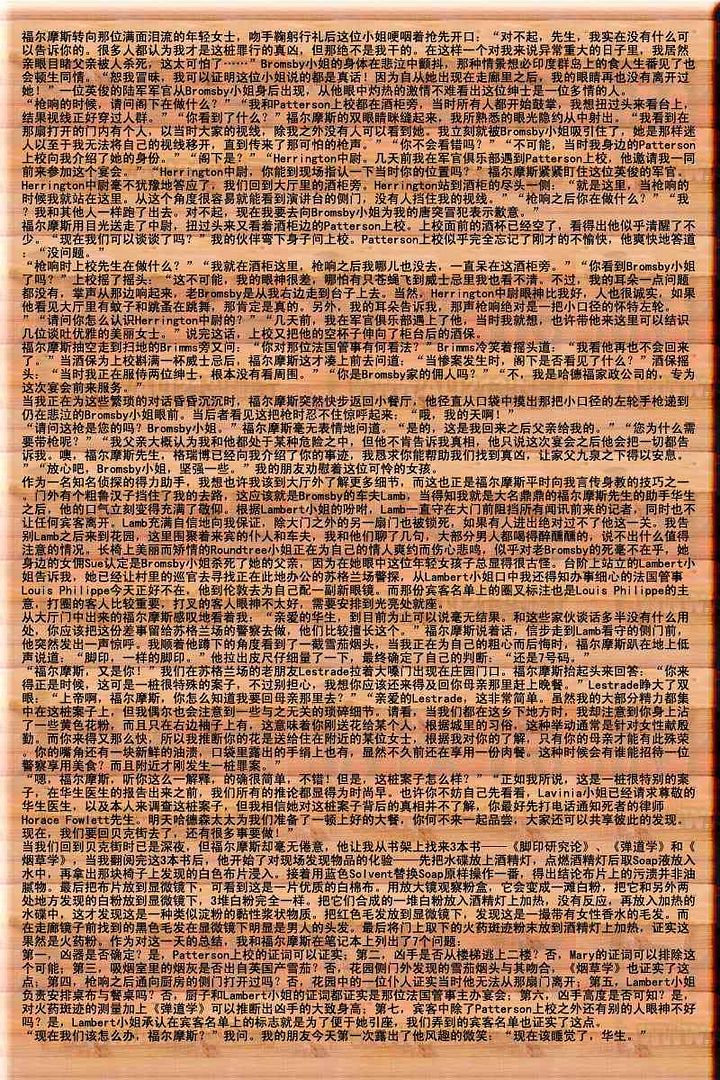 福尔摩斯转向那位满面泪流的年轻女士，吻手鞠躬行礼后这位小姐哽咽着抢先开口：“对不起，先生，我实在没有什么可
以告诉你的。很多人都认为我才是这桩罪行的真凶，但那绝不是我干的。在这样一个对我来说异常重大的日子里，我居然
亲眼目睹父亲被人杀死，这太可怕了……”Bromsby小姐的身体在悲泣中颤抖，那种情景想必印度群岛上的食人生番见了也
会顿生同情。“恕我冒昧，我可以证明这位小姐说的都是真话！因为自从她出现在走廊里之后，我的眼睛再也没有离开过
她！”一位英俊的陆军军官从Bromsby小姐身后出现，从他眼中灼热的激情不难看出这位绅士是一位多情的人。
“枪响的时候，请问阁下在做什么？”“我和Patterson上校都在酒柜旁，当时所有人都开始鼓掌，我想扭过头来看台上，
结果视线正好穿过人群。”“你看到了什么？”福尔摩斯的双眼睛眯缝起来，我所熟悉的眼光隐约从中射出。“我看到在
那扇打开的门内有个人，以当时大家的视线，除我之外没有人可以看到她。我立刻就被Bromsby小姐吸引住了，她是那样迷
人以至于我无法将自己的视线移开，直到传来了那可怕的枪声。”“你不会看错吗？”“不可能，当时我身边的Patterson
上校向我介绍了她的身份。”“阁下是？”“Herrington中尉。几天前我在军官俱乐部遇到Patterson上校，他邀请我一同
前来参加这个宴会。”“Herrington中尉，你能到现场指认一下当时你的位置吗？”福尔摩斯紧紧盯住这位英俊的军官。
Herrington中尉毫不犹豫地答应了，我们回到大厅里的酒柜旁。Herrington站到酒柜的尽头一侧：“就是这里，当枪响的
时候我就站在这里。从这个角度很容易就能看到演讲台的侧门，没有人挡住我的视线。”“枪响之后你在做什么？”“我
？我和其他人一样跑了出去。对不起，现在我要去向Bromsby小姐为我的唐突冒犯表示歉意。”
福尔摩斯用目光送走了中尉，扭过头来又看着酒柜边的Patterson上校。上校面前的酒杯已经空了，看得出他似乎清醒了不
少。“现在我们可以谈谈了吗？”我的伙伴弯下身子问上校。Patterson上校似乎完全忘记了刚才的不愉快，他爽快地答道
：“没问题。”
“枪响时上校先生在做什么？”“我就在酒柜这里，枪响之后我哪儿也没去，一直呆在这酒柜旁。”“你看到Bromsby小姐
了吗？”上校摇了摇头：“这不可能，我的眼神很差，哪怕有只苍蝇飞到威士忌里我也看不清。不过，我的耳朵一点问题
都没有，掌声从那边响起来，老Bromsby是从我右边走到台子上去。当然，Herrington中尉眼神比我好，人也很诚实，如果
他看见大厅里有蚊子和跳蚤在跳舞，那肯定是真的。另外，我的耳朵告诉我，那声枪响绝对是一把小口径的怀特左轮。
“请问你怎么认识Herrington中尉的？”“几天前，我在军官俱乐部遇上了他，当时我就想，也许带他来这里可以结识
几位谈吐优雅的美丽女士。”说完这话，上校又把他的空杯子伸向了柜台后的酒保。
福尔摩斯抽空走到扫地的Brimms旁又问：“你对那位法国管事有何看法？”Brimms冷笑着摇头道：“我看他再也不会回来
了。”当酒保为上校斟满一杯威士忌后，福尔摩斯这才凑上前去问道：“当惨案发生时，阁下是否看见了什么？”酒保摇
头：“当时我正在服侍两位绅士，根本没有看周围。”“你是Bromsby家的佣人吗？”“不，我是哈德福家政公司的，专为
这次宴会前来服务。”
当我正在为这些繁琐的对话昏昏沉沉时，福尔摩斯突然快步返回小餐厅，他径直从口袋中摸出那把小口径的左轮手枪递到
仍在悲泣的Bromsby小姐眼前。当后者看见这把枪时忍不住惊呼起来：“哦，我的天啊！”
“请问这枪是您的吗？Bromsby小姐。”福尔摩斯毫无表情地问道。“是的，这是我回来之后父亲给我的。”“您为什么需
要带枪呢？”“我父亲大概认为我和他都处于某种危险之中，但他不肯告诉我真相，他只说这次宴会之后他会把一切都告
诉我。噢，福尔摩斯先生，格瑞博已经向我介绍了你的事迹，我恳求你能帮助我们找到真凶，让家父九泉之下得以安息。
”“放心吧，Bromsby小姐，坚强一些。”我的朋友劝慰着这位可怜的女孩。
作为一名知名侦探的得力助手，我想也许我该到大厅外了解更多细节，而这也正是福尔摩斯平时向我言传身教的技巧之一
。门外有个粗鲁汉子挡住了我的去路，这应该就是Bromsby的车夫Lamb，当得知我就是大名鼎鼎的福尔摩斯先生的助手华生
之后，他的口气立刻变得充满了敬仰。根据Lambert小姐的吩咐，Lamb一直守在大门前阻挡所有闻讯前来的记者，同时也不
让任何宾客离开。Lamb充满自信地向我保证，除大门之外的另一扇门也被锁死，如果有人进出绝对过不了他这一关。我告
别Lamb之后来到花园，这里围聚着来宾的仆人和车夫，我和他们聊了几句，大部分男人都喝得醉醺醺的，说不出什么值得
注意的情况。长椅上美丽而矫情的Roundtree小姐正在为自己的情人爽约而伤心悲鸣，似乎对老Bromsby的死毫不在乎，她
身边的女佣Sue认定是Bromsby小姐杀死了她的父亲，因为在她眼中这位年轻女孩子总显得很古怪。台阶上站立的Lambert小
姐告诉我，她已经让村里的巡官去寻找正在此地办公的苏格兰场警探，从Lambert小姐口中我还得知办事细心的法国管事
Louis Philippe今天正好不在，他到伦敦去为自己配一副新眼镜。而那份宾客名单上的圈叉标注也是Louis Philippe的主
意，打圈的客人比较重要，打叉的客人眼神不太好，需要安排到光亮处就座。
从大厅门中出来的福尔摩斯感叹地看着我：“亲爱的华生，到目前为止可以说毫无结果。和这些家伙谈话多半没有什么用
处，你应该把这份差事留给苏格兰场的警察去做，他们比较擅长这个。”福尔摩斯说着话，信步走到Lamb看守的侧门前，
他突然发出一声惊呼。我顺着他蹲下的角度看到了一截雪茄烟头，当我正在为自己的粗心而后悔时，福尔摩斯趴在地上低
声说道：“脚印，一样的脚印。”他拉出皮尺仔细量了一下，最终确定了自己的判断：“还是7号码。”
“福尔摩斯，又是你！”我们在苏格兰场的老朋友Lestrade拉着大嗓门出现在庄园门口。福尔摩斯抬起头来回答：“你来
得正是时候，这可是一桩很特殊的案子，不过别担心，我想你应该还来得及回你母亲那里赶上晚餐。”Lestrade睁大了双
眼：“上帝啊，福尔摩斯，你怎么知道我要回母亲那里去？”“亲爱的Lestrade，这非常简单。虽然我的大部分精力都集
中在这桩案子上，但我偶尔也会注意到一些与之无关的琐碎细节。请看，当我们都在这乡下地方时，我却注意到你身上沾
了一些黄色花粉，而且只在右边袖子上有，这意味着你刚送花给某个人，根据城里的习俗。这种举动通常是针对女性献殷
勤。而你来得又那么快，所以我推断你的花是送给住在附近的某位女士，根据我对你的了解，只有你的母亲才能有此殊荣
。你的嘴角还有一块新鲜的油渍，口袋里露出的手绢上也有，显然不久前还在享用一份肉餐。这种时候会有谁能招待一位
警察享用美食？而且附近才刚发生一桩罪案。”
“嗯，福尔摩斯，听你这么一解释，的确很简单，不错！但是，这桩案子怎么样？”“正如我所说，这是一桩很特别的案
子，在华生医生的报告出来之前，我们所有的推论都显得为时尚早。也许你不妨自己先看看，Lavinia小姐已经请求尊敬的
华生医生，以及本人来调查这桩案子，但我相信她对这桩案子背后的真相并不了解，你最好先打电话通知死者的律师
Horace Fowlett先生。明天哈德森太太为我们准备了一顿上好的大餐，你何不来一起品尝，大家还可以共享彼此的发现。
现在，我们要回贝克街去了，还有很多事要做！”
当我们回到贝克街时已是深夜，但福尔摩斯却毫无倦意，他让我从书架上找来3本书——《脚印研究论》、《弹道学》和《
烟草学》，当我翻阅完这3本书后，他开始了对现场发现物品的化验——先把水碟放上酒精灯，点燃酒精灯后取Soap液放入
水中，再拿出那块椅子上发现的白色布片浸入，接着用蓝色Solvent替换Soap原样操作一番，得出结论布片上的污渍并非油
腻物。最后把布片放到显微镜下，可看到这是一片优质的白棉布。用放大镜观察粉盒，它会变成一滩白粉，把它和另外两
处地方发现的白粉放到显微镜下，3堆白粉完全一样。把它们合成的一堆白粉放入酒精灯上加热，没有反应，再放入加热的
水碟中，这才发现这是一种类似淀粉的黏性浆状物质。把红色毛发放到显微镜下，发现这是一撮带有女性香水的毛发。而
在走廊镜子前找到的黑色毛发在显微镜下明显是男人的头发。最后将门上取下的火药斑迹粉末放到酒精灯上加热，证实这
果然是火药粉。作为对这一天的总结，我和福尔摩斯在笔记本上列出了7个问题：
第一，凶器是否确定？是，Patterson上校的证词可以证实；第二，凶手是否从楼梯逃上二楼？否，Mary的证词可以排除这
个可能；第三，吸烟室里的烟灰是否出自英国产雪茄？否，花园侧门外发现的雪茄烟头与其吻合，《烟草学》也证实了这
点；第四，枪响之后通向厨房的侧门打开过吗？否，花园中的一位仆人证实当时他无法从那扇门离开；第五，Lambert小姐
负责安排桌布与餐桌吗？否，厨子和Lambert小姐的证词都证实是那位法国管事主办宴会；第六，凶手高度是否可知？是，
对火药斑迹的测量加上《弹道学》可以推断出凶手的大致身高；第七，宾客中除了Patterson上校之外还有别的人眼神不好
吗？是，Lambert小姐承认在宾客名单上的标志就是为了便于她引座，我们弄到的宾客名单也证实了这点。
“现在我们该怎么办，福尔摩斯？”我问。我的朋友今天第一次露出了他风趣的微笑：“现在该睡觉了，华生。”